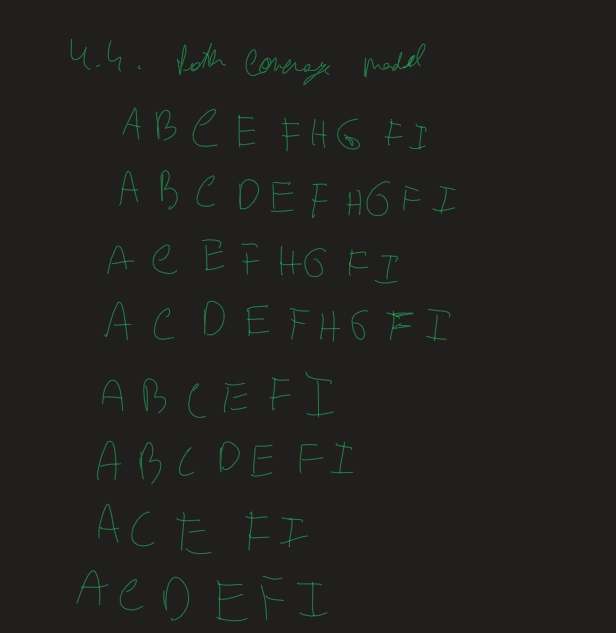 4.4. Path Coverage model
A B C E F H G F I
A B C D E F H G F I
A C E F H G F I
A C D E F H G F I
A B C E F I
A B C D E F I
A C E F I
A C D E F I